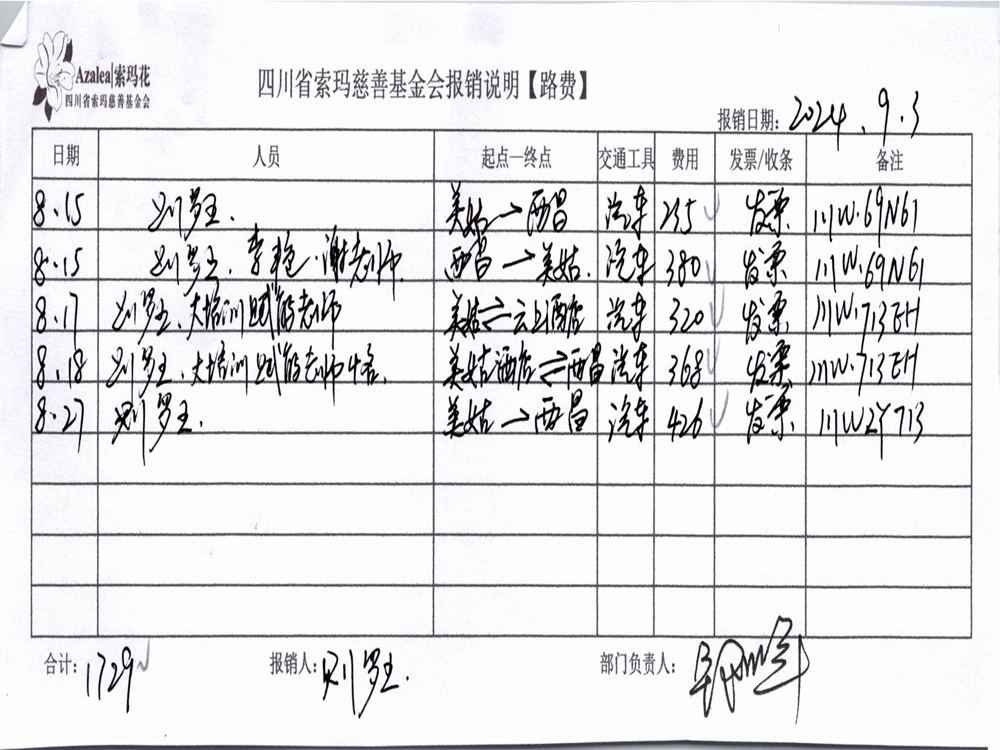 Azalea|索玛花
四川省索玛慈善基金会
四川省索玛慈善基金会报销说明【路费】
报销日期: 2024.9.3
日期 人员 起点—终点 交通工具 费用 发票/收条 备注
8.15 则罗王. 美姑→西昌 汽车 235 发票 川W.69N61
8.15 则罗王.李艳.谢老师 西昌→美姑. 汽车 380 发票 川W.69N61
8.17 则罗王.大培训 老师 美姑⇌云上酒店 汽车 320 发票 川W.713EH
8.18 则罗王.大培训 老师 美姑酒店⇌西昌 汽车 368 发票 川W.713EH
8.27 则罗王. 美姑→西昌 汽车 426 发票 川W2Y713
合计: 1729 报销人: 则罗王. 部门负责人: